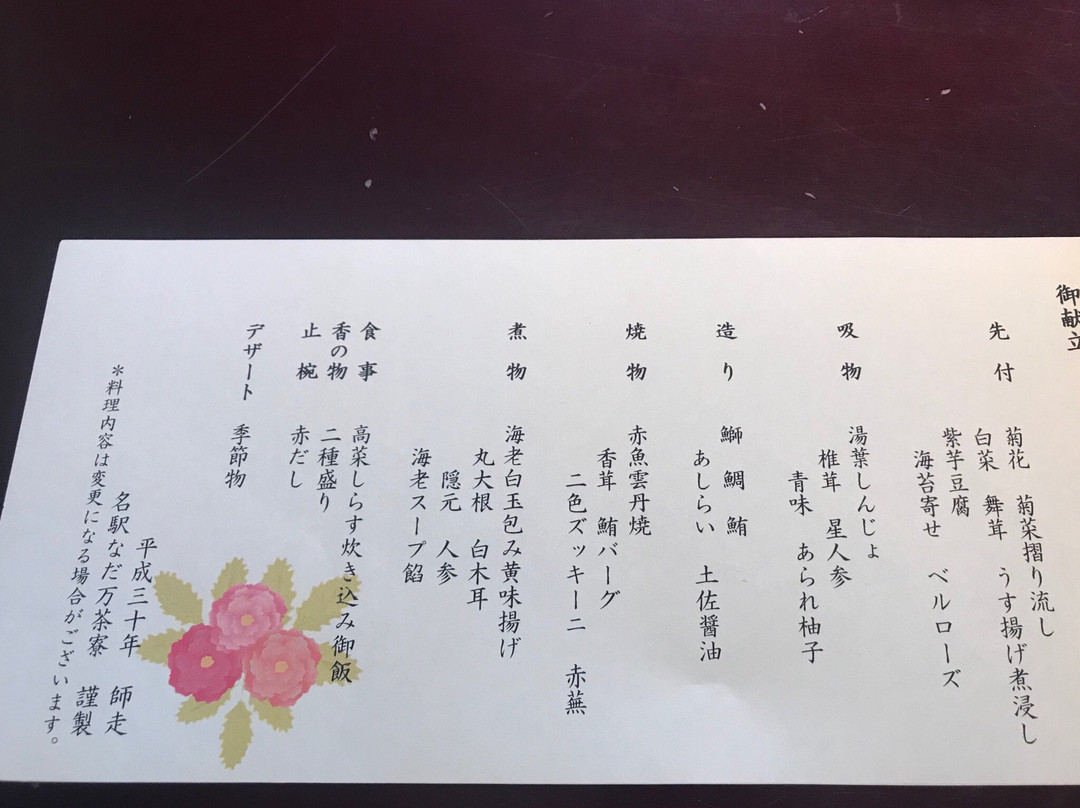 御献立
先付
菊花 菊菜摺り流し
白菜 舞茸 うす揚げ煮浸し
紫芋豆腐
海苔寄せ ベルローズ
吸物
湯葉しんじょ
椎茸 星人参
青味 あられ柚子
造り
鰤 鯛 鮪
あしらい 土佐醤油
焼物
赤魚雲丹焼
香茸 鮪バーグ
二色ズッキーニ 赤蕪
煮物
海老白玉包み黄味揚げ
丸大根 白木耳
隠元 人参
海老スープ餡
食事 高菜しらす炊き込み御飯
香の物 二種盛り
止椀 赤だし
デザート 季節物
平成三十年 師走
名駅なだ万茶寮 謹製
*料理内容は変更になる場合がございます。